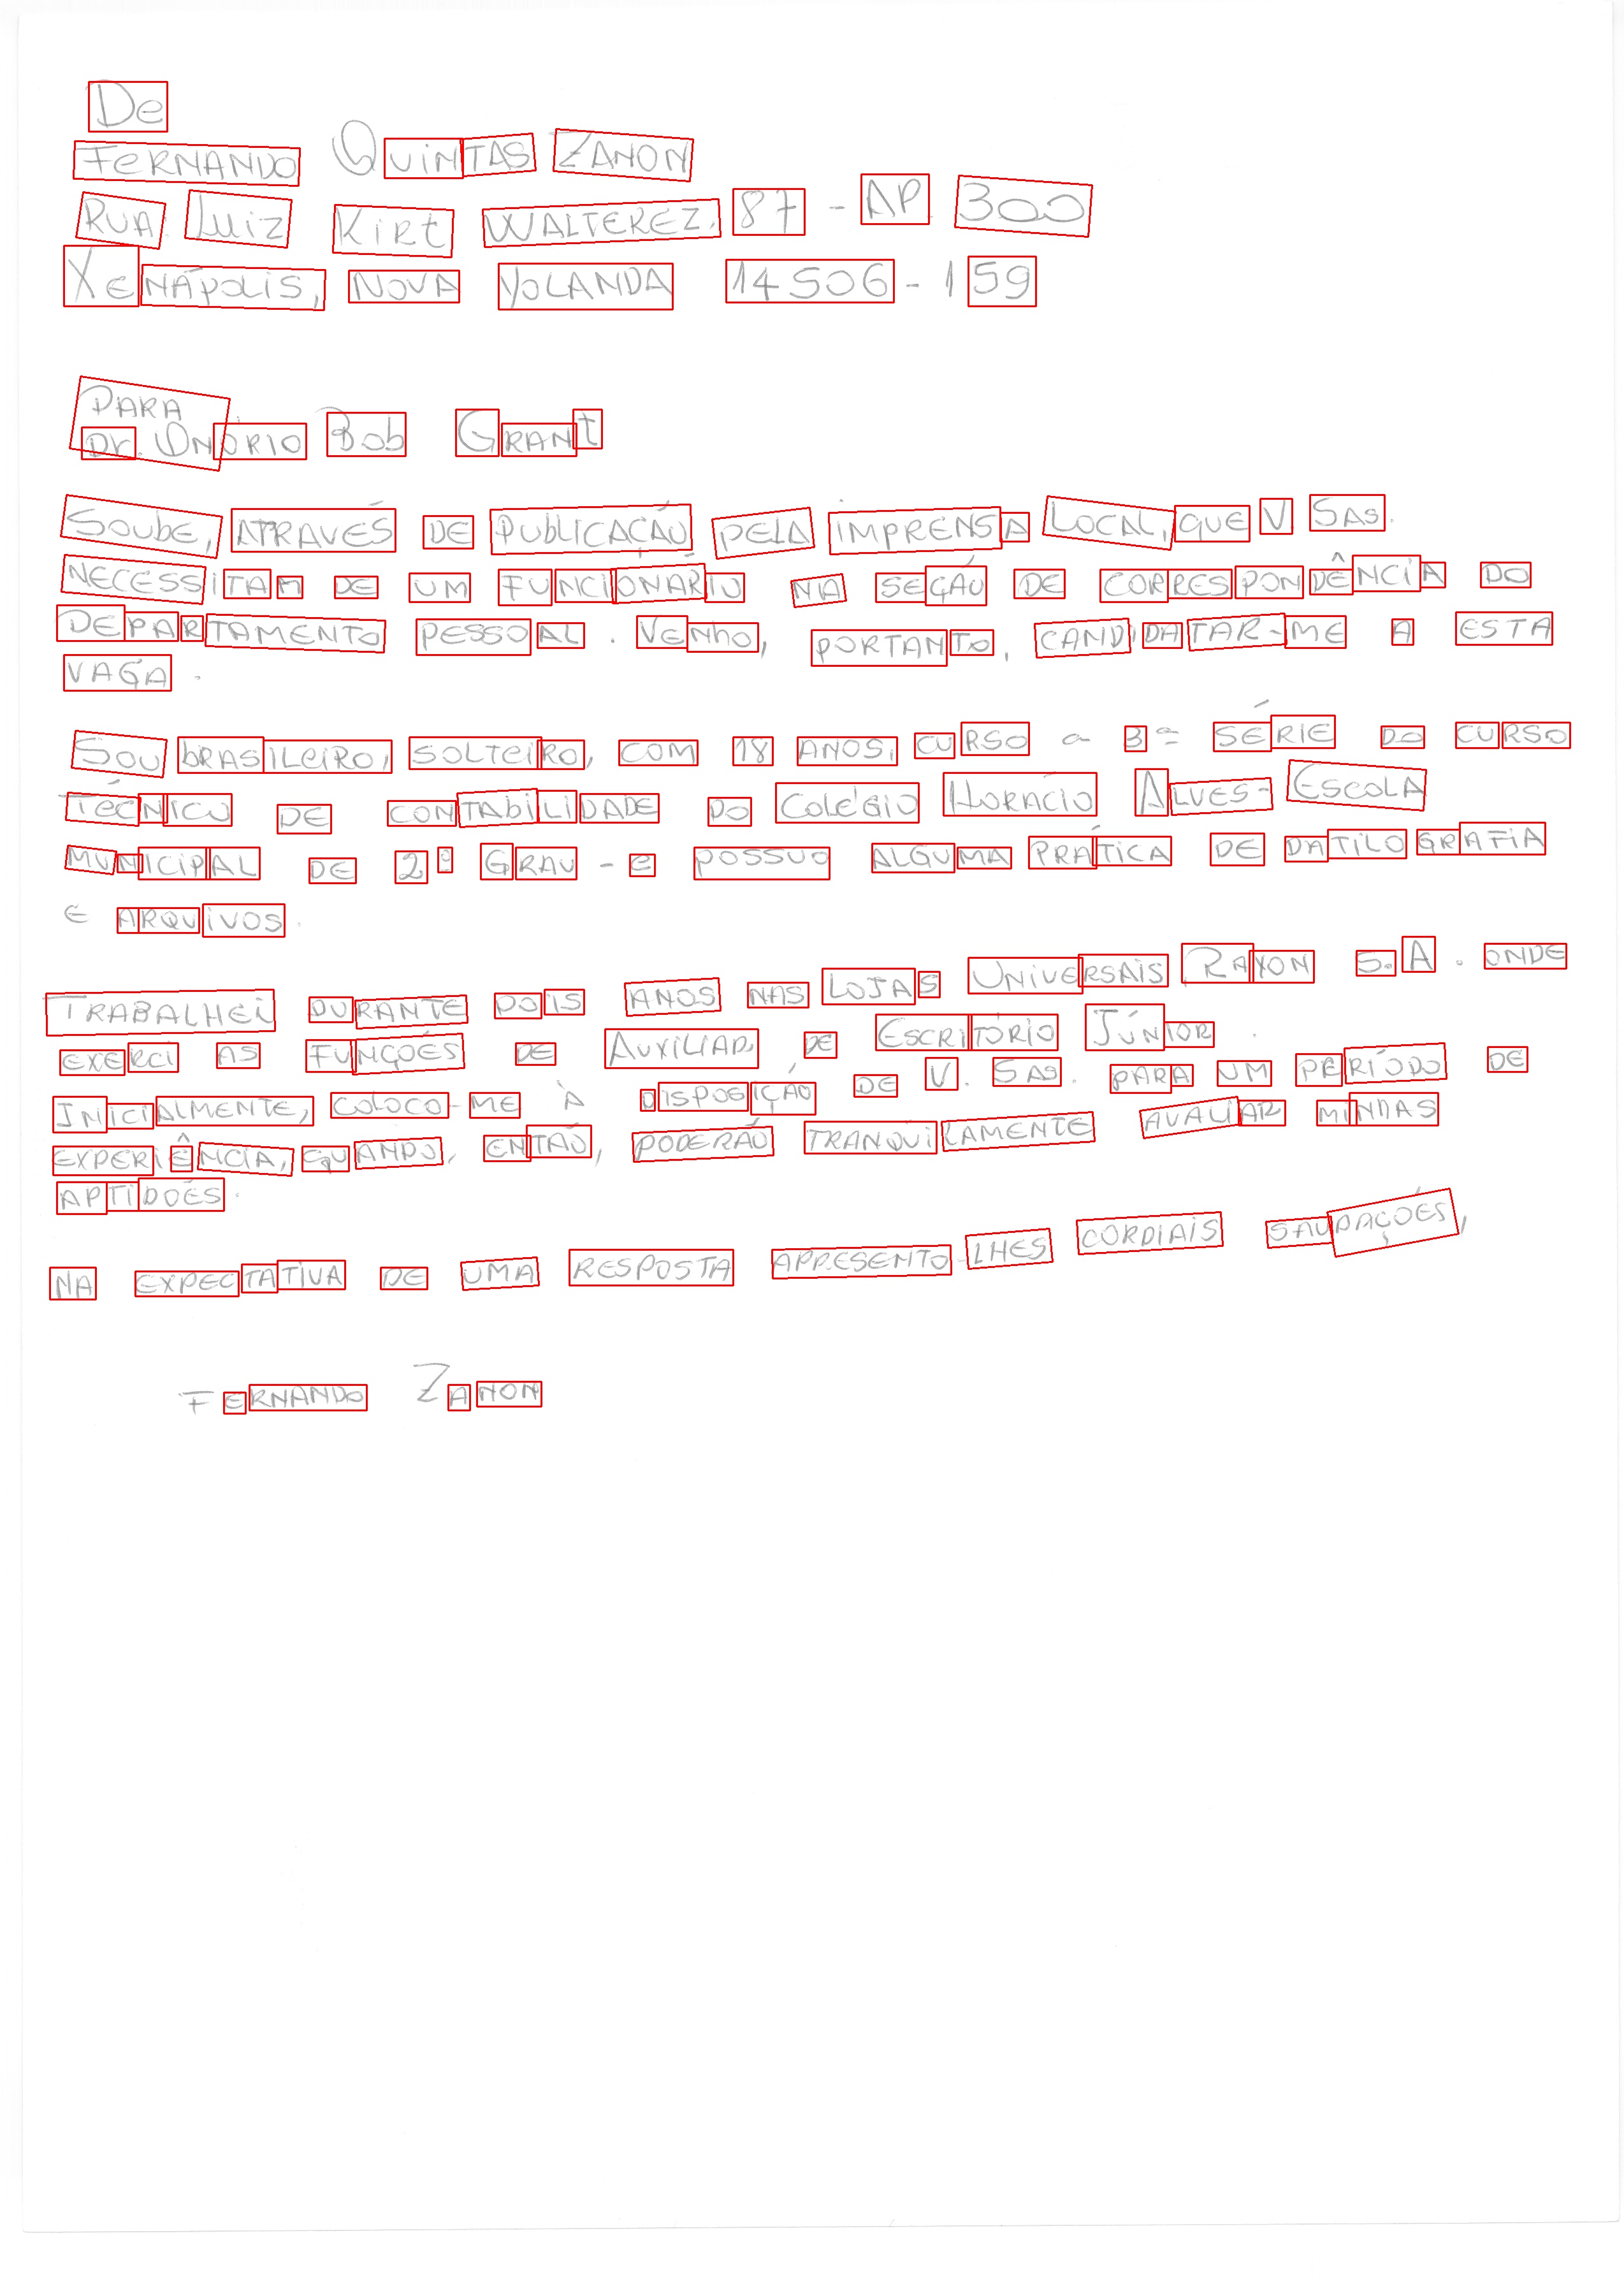 De
FERNANDO QUINTAS ZANON
RUA Luiz Kirt WALTEREZ, 87 - AP. 300
XENÁPOLIS, NOVA YOLANDA 14506-159
PARA
Dr. ONÓRIO Bob GRANt
Soube, ATRAVÉS DE PUBLICAÇÃO PELA IMPRENSA LOCAL, QUE V SAs.
NECESSITAM DE UM FUNCIONÁRIO NA SEÇÃO DE CORRESPONDÊNCIA DO
DEPARTAMENTO PESSOAL. VENHO, PORTANTO, CANDIDATAR-ME A ESTA
VAGA.
SOU BRASILEIRO, SOLTEIRO, COM 18 ANOS, CURSO a 3ª SÉRIE DO CURSO
TÉCNICO DE CONTABILIDADE DO COLÉGIO HORÁCIO ALVES - ESCOLA
MUNICIPAL DE 2º GRAU - e POSSUO ALGUMA PRÁTICA DE DATILOGRAFIA
E ARQUIVOS.
TRABALHEI DURANTE DOIS ANOS NAS LOJAS UNIVERSAIS RAXON S.A. ONDE
EXERCI AS FUNÇÕES DE AUXILIAR, DE ESCRITÓRIO JÚNIOR.
INICIALMENTE, COLOCO-ME À DISPOSIÇÃO DE V. SAs. PARA UM PERÍODO DE
EXPERIÊNCIA, EQUANDO, ENTÃO, PODERÃO TRANQUILAMENTE AVALIAR MINHAS
APTIDÕES.
NA EXPECTATIVA DE UMA RESPOSTA APRESENTO-LHES CORDIAIS SAUDAÇÕES,
FERNANDO ZANON